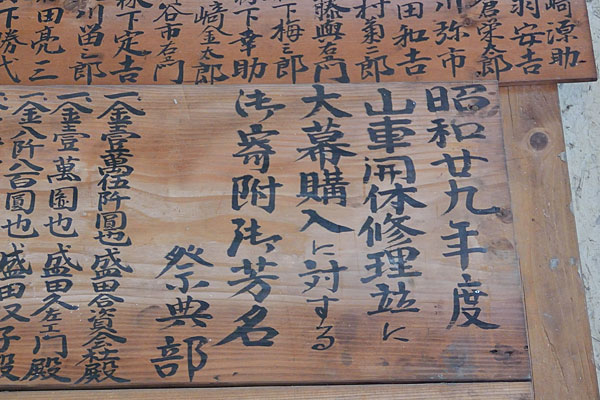 崎源助
羽安吉
倉栄太郎
川弥市
田和吉
村菊二郎
藤與右門
下梅三郎
下幸助
崎金太郎
谷市右門
森下定吉
川留二郎
田亮三
下勝代
昭和廿九年度
山車開体修理並に
大幕購入に対する
御寄附御芳名
祭典部
一、金壹萬伍阡圓也 盛田合資会社殿
一、金壹萬圓也 盛田久左エ門殿
一、金八阡八百圓也 盛田又子殿